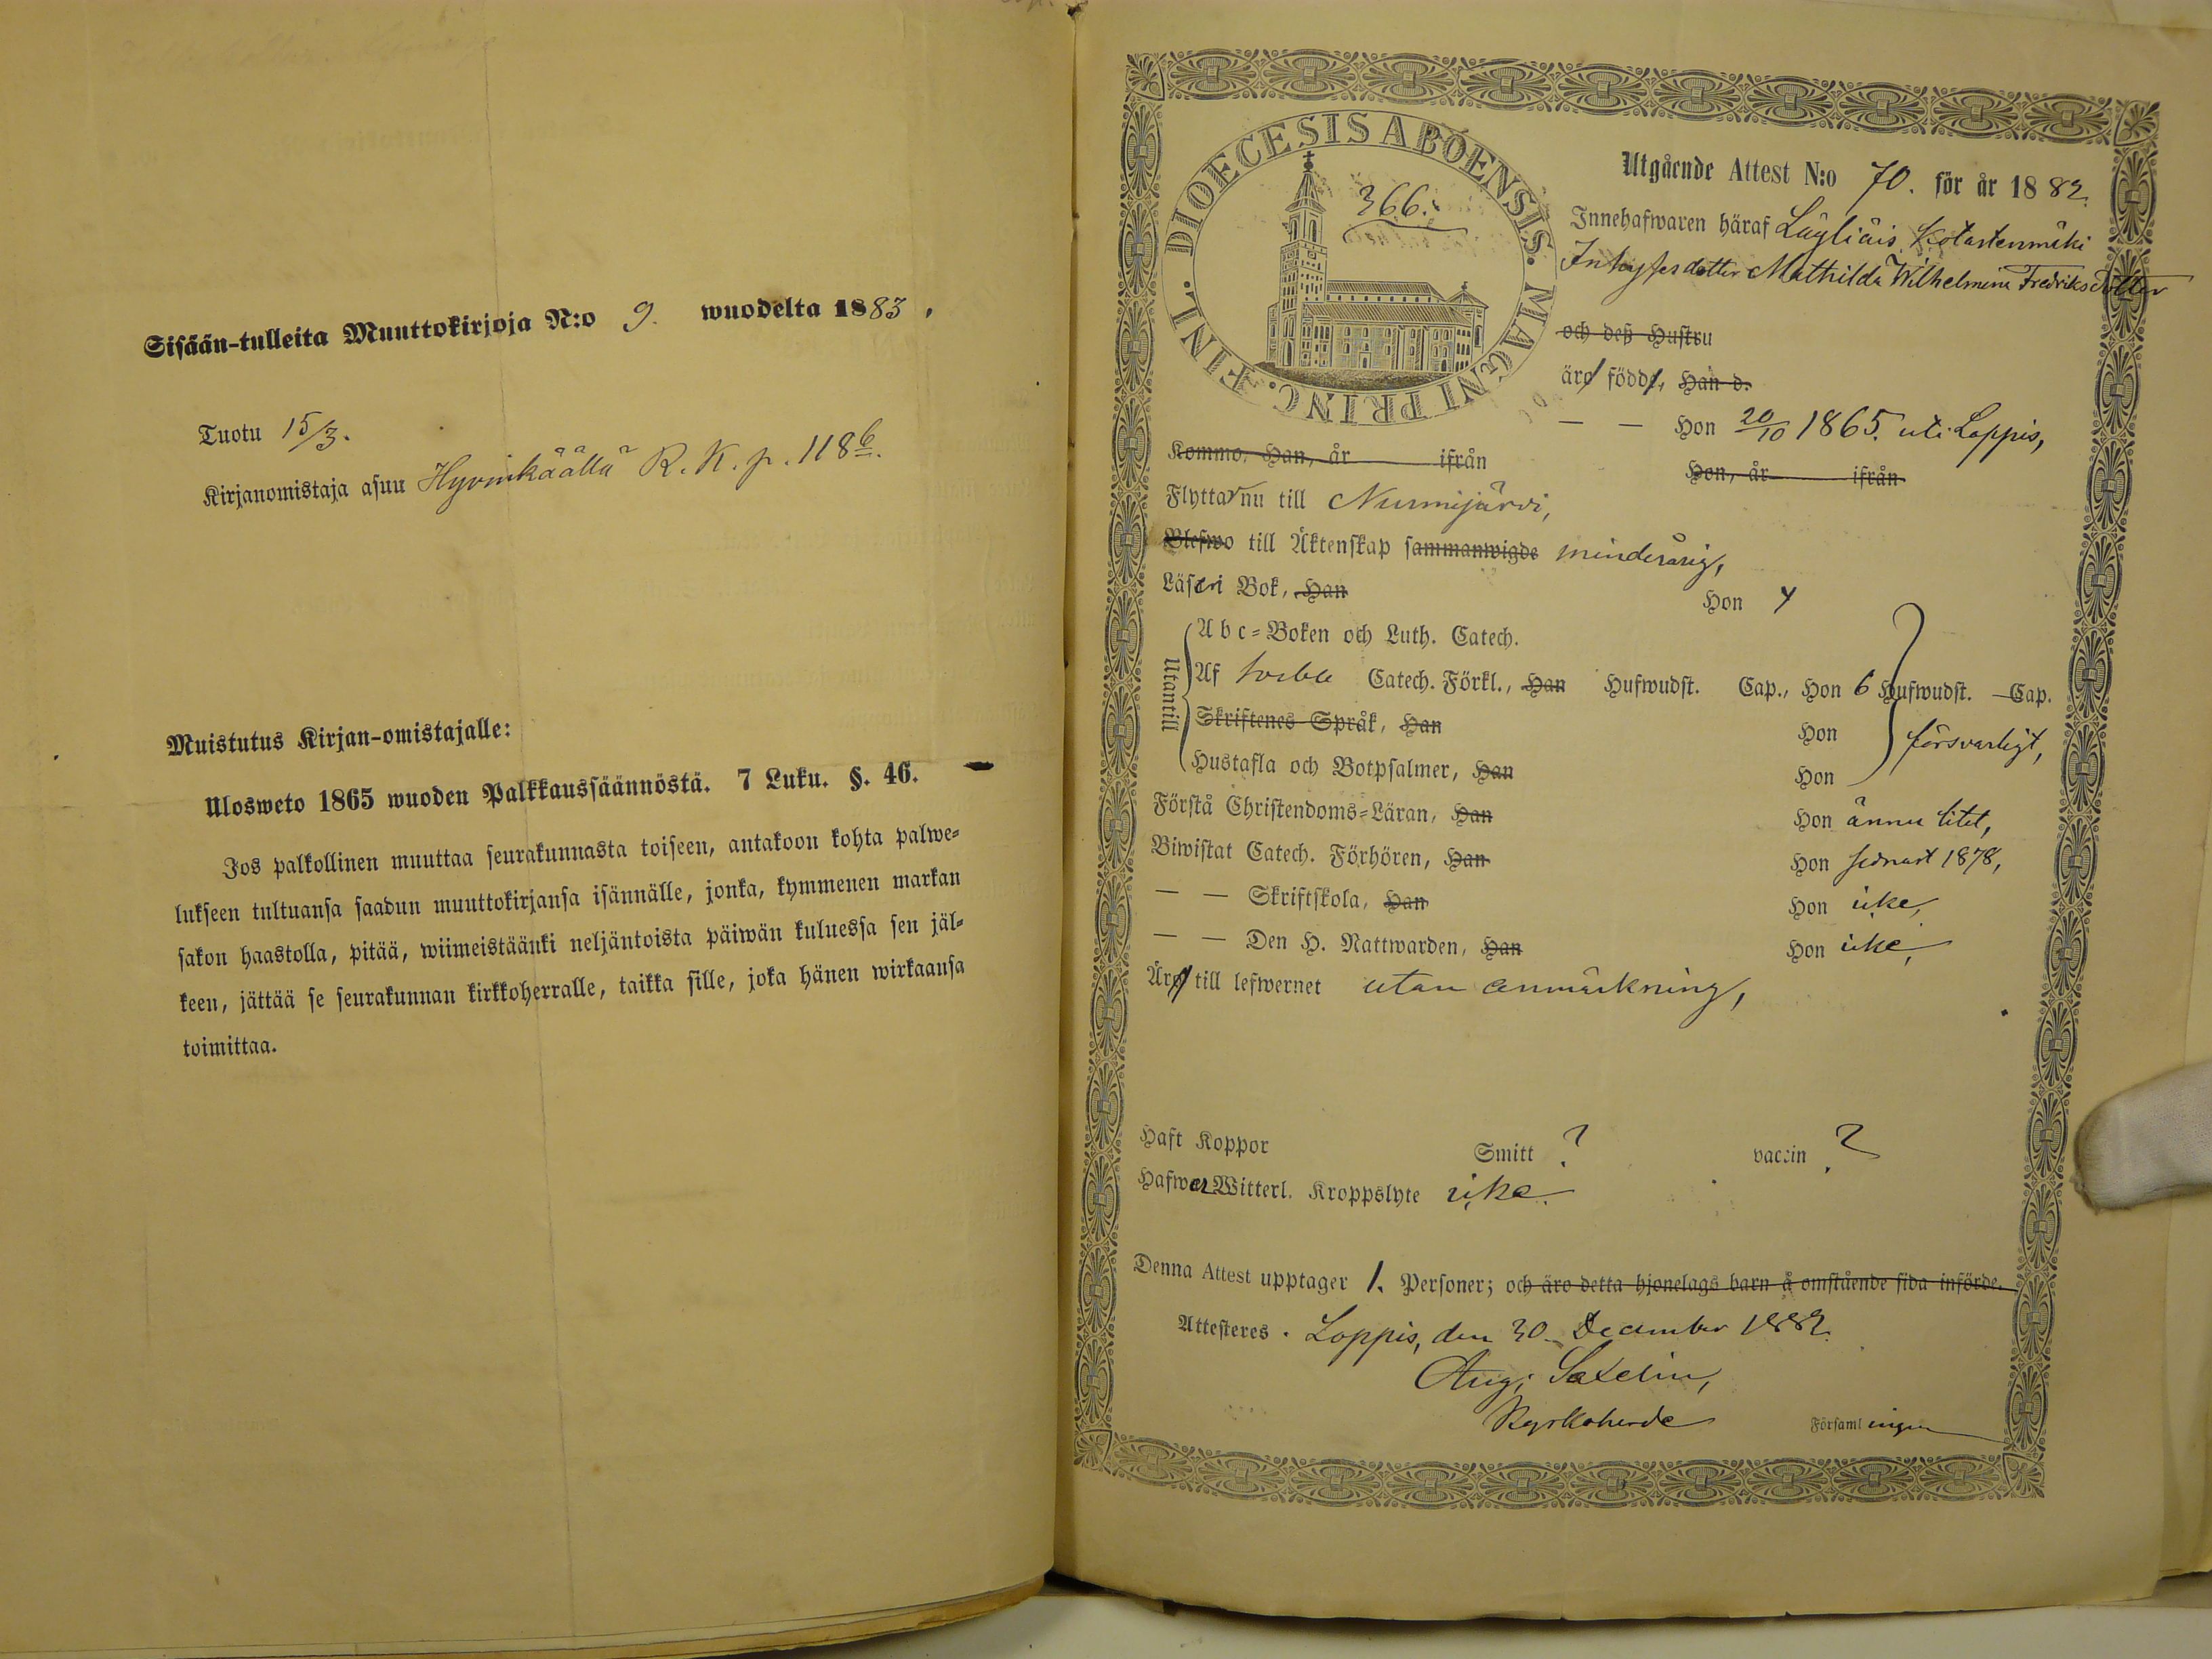 Sisään-tulleita Muuttokirjoja N:o 9. wuodelta 1883,
Tuotu 15/3.
Kirjanomistaja asuu Hyvinkäällä R. K. p. 118 b.
Muistutus Kirjan-omistajalle:
Ulosweto 1865 wuoden Palkkaussäännöstä. 7 Luku. §. 46.
Jos palkollinen muuttaa seurakunnasta toiseen, antakoon kohta palwe-
lukseen tultuansa saadun muuttokirjansa isännälle, jonka, kymmenen markan
sakon haastolla, pitää, wiimeistäänki neljäntoista päiwän kuluessa sen jäl-
keen, jättää se seurakunnan kirkkoherralle, taikka sille, joka hänen wirkaansa
toimittaa.
DIOECESIS ABOENSIS. MAGNI PRINC. FINL.
366.
Utgående Attest N:o 70. för år 1882.
Innehafwaren häraf Lägliäis Kotastenmäki
Inhysesdotter Mathilda Wilhelmina Fredriksdotter
och deß Hustru
äro född, Han d.
— — Hon 20/10 1865. uti Loppis,
Kommo. Han, år ifrån Hon, år ifrån
Flyttar nu till Nurmijärvi,
Blefwo till Äktenskap sammanwigde minderårig,
Läser i Bok, Han Hon y
Utantill
Abc-Boken och Luth. Catech.
Af Catech. Förkl., Han Hufwudst. Cap., Hon 6 Hufwudst. Cap.
Skriftenes Språk, Han Hon försvarligt,
Hustafla och Botpsalmer, Han Hon
Förstå Christendoms-Läran, Han Hon ännu litet,
Biwistat Catech. Förhören, Han Hon sednast 1878,
— — Skriftskola, Han Hon icke,
— — Den H. Nattwarden, Han Hon icke,
Är till lefwernet utan anmärkning,
Haft Koppor Smitt ? vaccin ?
Hafwer Witterl. Kroppslyte icke.
Denna Attest upptager 1. Personer; och äro detta hjonelags barn å omstående sida införde.
Attesteres. Loppis, den 30. December 1882.
Aug. Saxelin,
Kyrkoherde Församlingen